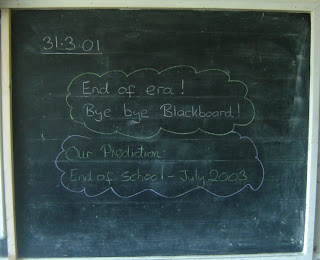 31.3.01
End of era!
Bye bye Blackboard!
Our Prediction:
End of school - July 2003